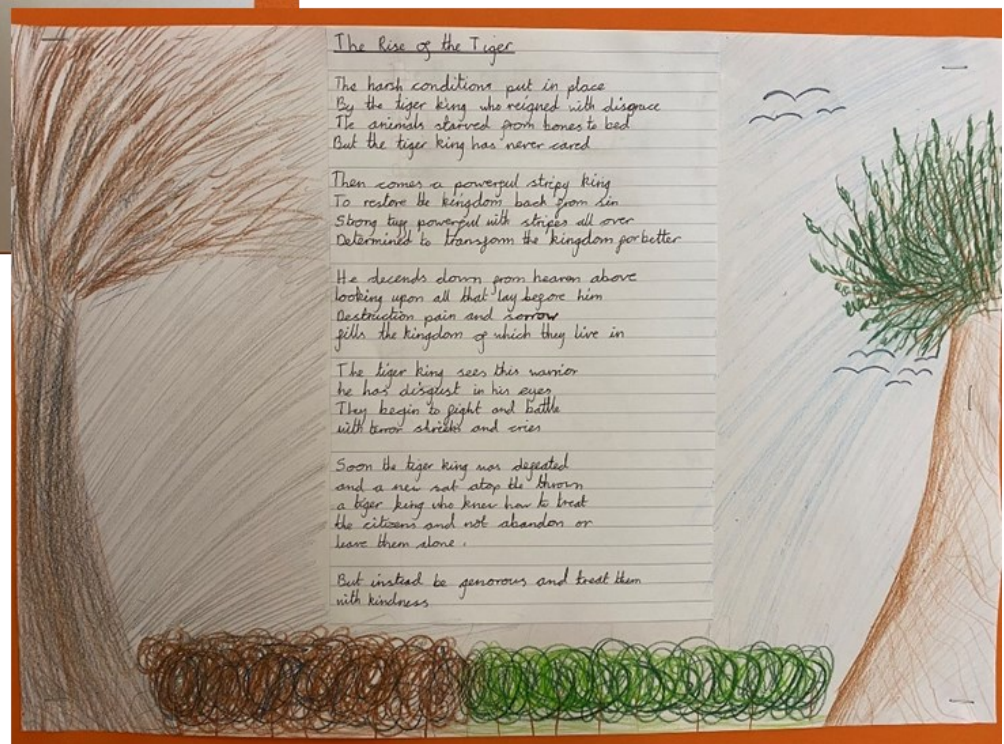 The Rise of the Tiger
The harsh conditions put in place
By the tiger king who reigned with disgrace
The animals starved from bones to bed
But the tiger king has never cared
Then comes a powerful stripy king
To restore the kingdom back from sin
Strong tuff powerful with stripes all over
Determined to transform the kingdom for better
He decends down from heaven above
looking upon all that lay before him
Destruction pain and sorrow
fills the kingdom of which they live in
The tiger king sees this warrior
he has disgust in his eyes
They begin to fight and battle
with terror shrieks and cries
Soon the tiger king was defeated
and a new sat atop the thrown
a tiger king who knew how to treat
the citizens and not abandon or
leave them alone.
But instead be genorous and treat them
with kindness